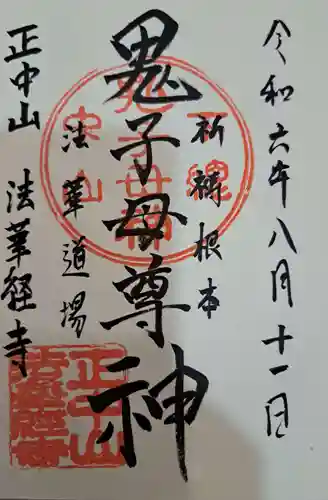 令和六年八月十一日
祈祷根本
鬼子母尊神
法華道場
正中山 法華経寺
正中山
法華経寺